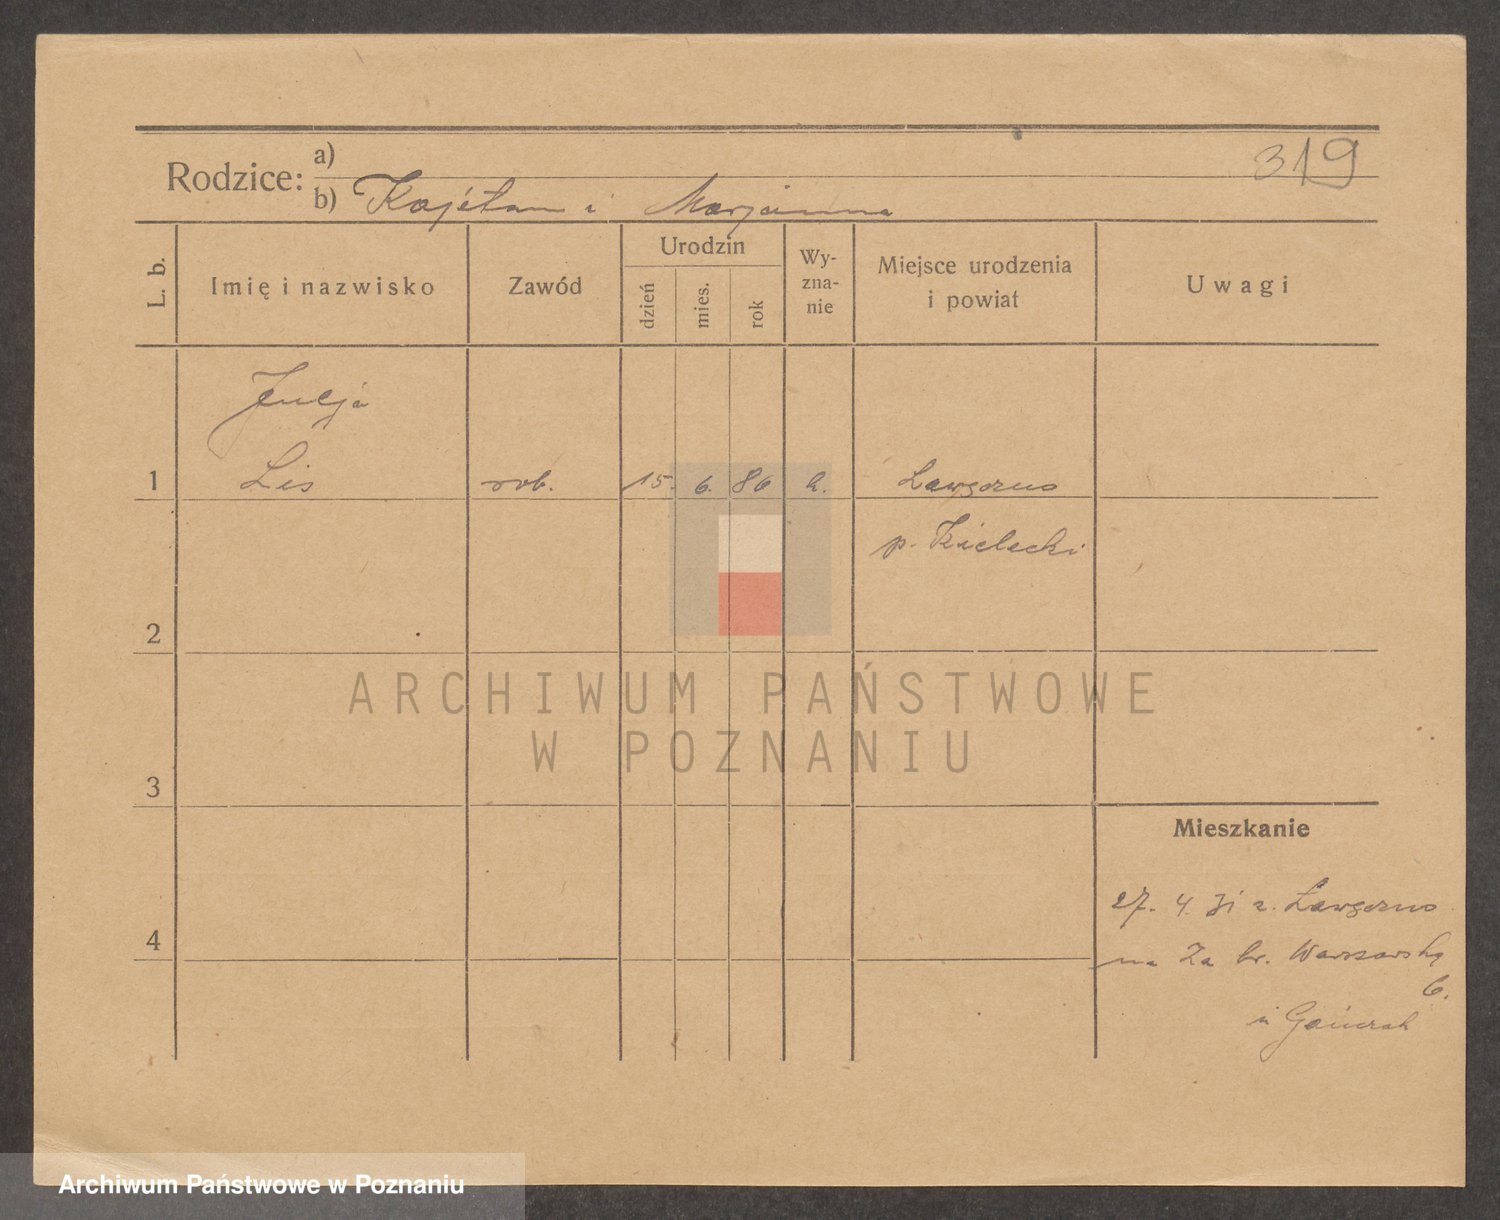 319
Rodzice: a)
b) Kajetan i Marjanna
L. b.
Imię i nazwisko
Zawód
Urodzin
dzień
mies.
rok
Wy-
zna-
nie
Miejsce urodzenia
i powiat
Uwagi
Julja
1 Lis rob. 15. 6. 86 k.
p. Kielecki
2
ARCHIWUM PAŃSTWOWE
W POZNANIU
3
Mieszkanie
27. 4. 31 z
4
na Za br. Warszawską
6.
Archiwum Państwowe w Poznaniu